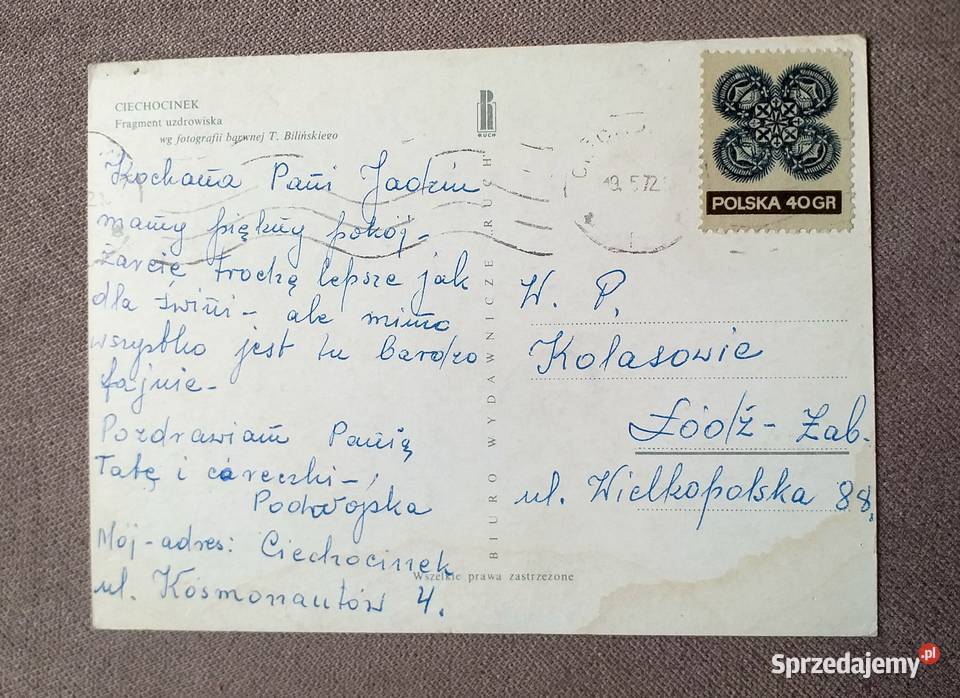 CIECHOCINEK
Fragment uzdrowiska
wg fotografii barwnej T. Bilińskiego
RUCH
POLSKA 40 GR
5.72
Kochana Pani Jadziu
mamy piękny pokój -
Żarcie trochę lepsze jak
dla świni - ale mimo
wszystko jest tu bardzo
fajnie -
Pozdrawiam Panią
Tatę i córeczki -,
Mój - adres: Ciechocinek
ul. Kosmonautów 4.
BIURO WYDAWNICZE RUCH
W. P.
Kolasowie
Łódź - Żab.
ul. Wielkopolska 88.
Wszelkie prawa zastrzeżone
Sprzedajemy.pl